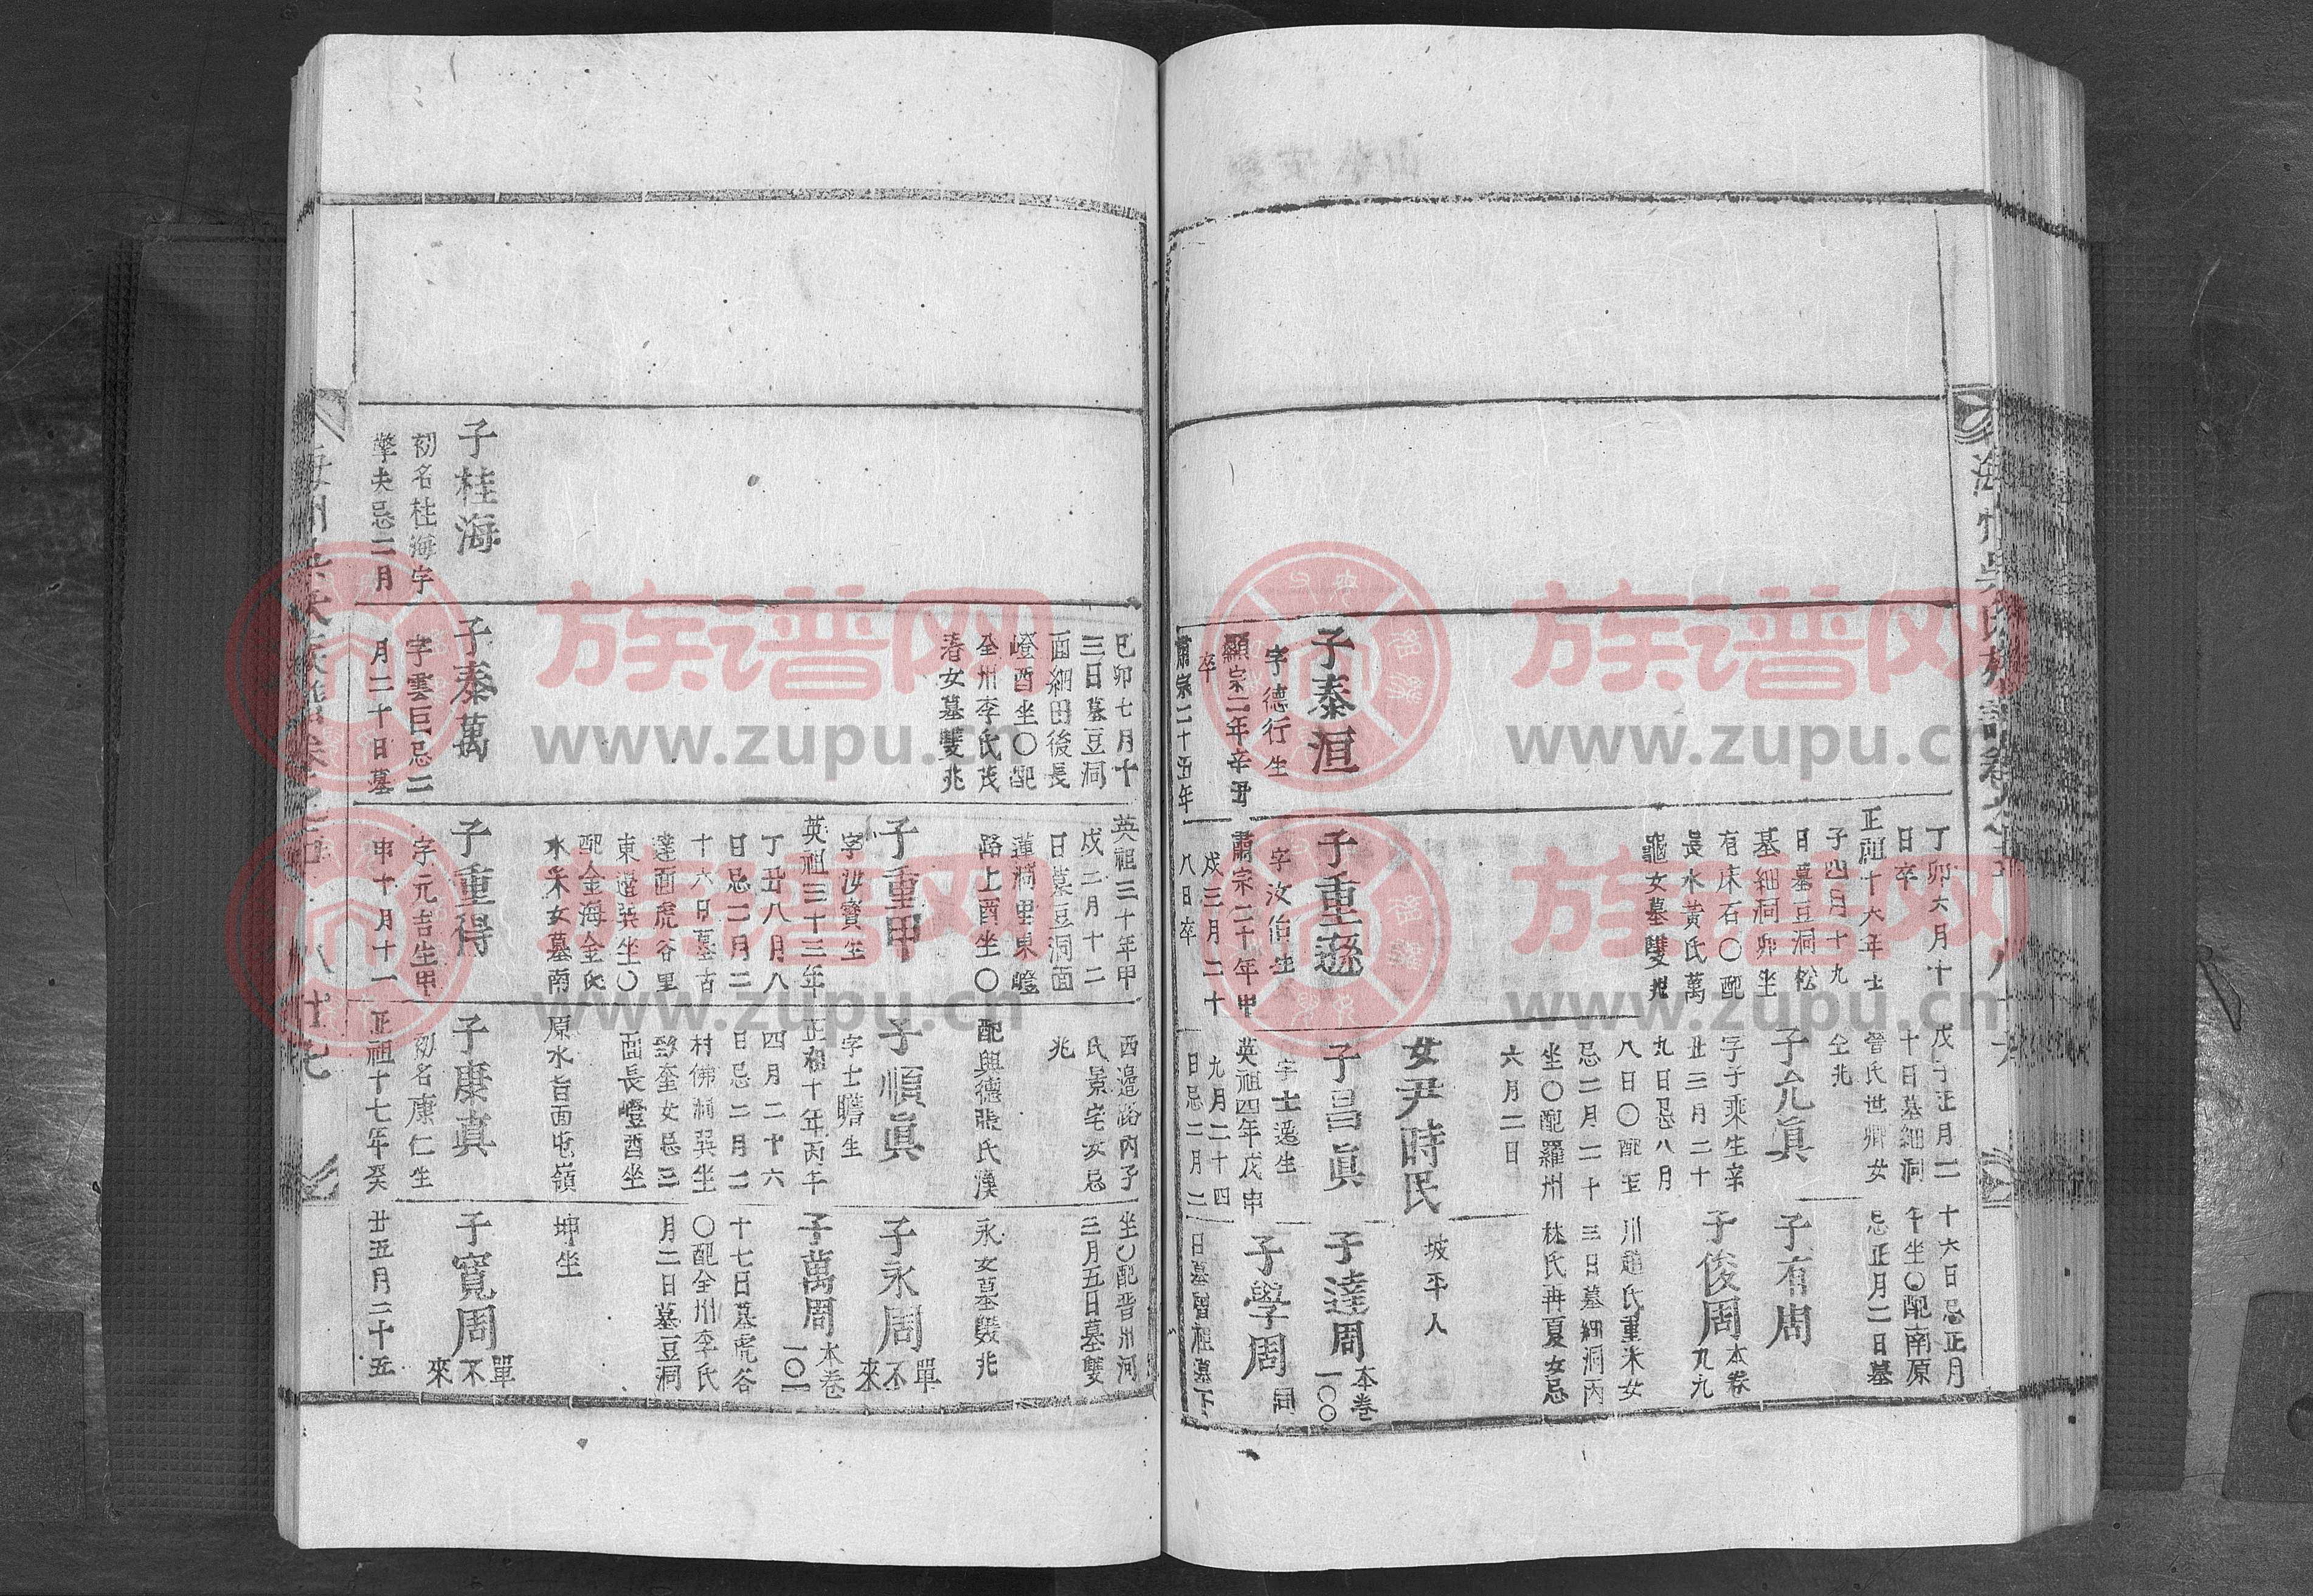 子泰洹
字德行生
顯宗二年辛丑
卒
肅宗二十五年
丁卯六月十
日卒
正祖十六年士
子四月十九
日墓豆洞松
墓細洞卯坐
有床石〇配
長水黃氏萬
龜女墓雙兆
子重遜
字汝
肅宗二十年甲
戌三月二十
八日卒
戊子正月二
十日墓細洞
晉氏世卿女
仝兆
子允眞
字子乘生辛
丑三月二十
九日忌八月
八日〇配玉
忌二月二十
坐〇配羅州
六月二日
女尹時民
子昌眞
字士遜生
英祖四年戊申
九月二十四
日忌二月二
十六日忌正月
午坐〇配南原
忌正月二日墓
子有周
子俊周
本卷
九九
川趙氏重米女
三日墓細洞丙
林氏再夏女忌
坡平人
子達周
本卷
一〇〇
子學周
同
日墓曾祖墓下
己卯七月十
三日墓豆洞
面細田後長
嶝酉坐〇配
全州李氏茂
春女墓雙兆
英祖三十年甲
戌二月十二
日墓豆洞面
蓮洞里東嶝
路上酉坐〇
子重甲
字汝寶生
英祖三十三年
丁丑八月八
日忌二月二
十六日墓古
達面虎谷里
東邊巽坐〇
配金海金氏
水米女墓南
西邊路內子
氏景宅女忌
兆
配興德張氏漢
子順眞
字士贍生
正祖十年丙午
四月二十六
日忌二月二
村佛洞巽坐
致奎女忌三
面長嶝酉坐
原水旨面屯嶺
坐〇配晉州河
三月五日墓雙
永女墓雙兆
子永周
單不來
子萬周
本卷
一〇一
十七日墓虎谷
〇配全州李氏
月二日墓豆洞
坤坐
子桂海
初名柱海字
擎夫忌二月
子泰萬
字雲巨忌二
月二十日墓
子重得
字元吉生甲
申十月十一
子康眞
初名康仁生
正祖十七年癸
子寬周
單不來
丑五月二十五